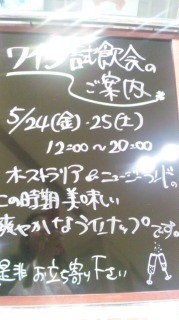 ワイン試飲会の
ご案内
5/24(金)・25(土)
12:00〜20:00
オーストラリア&ニュージーランドの
この時期美味しい
爽やかなラインナップです。
是非お立ち寄り下さい